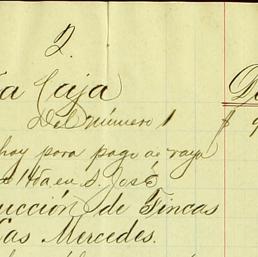 2.
a Caja De
Del número 1 $ 9
hay para pago de raya
Hda en S. José
ucción de Fincas
as Mercedes.